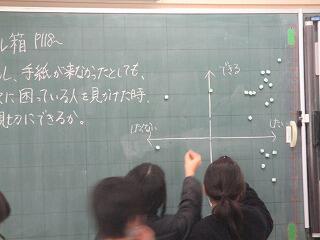 ル箱 P118~
し、手紙が来なかったとしても、
に困っている人を見かけた時、
親切にできるか。
できる
したくない
したい